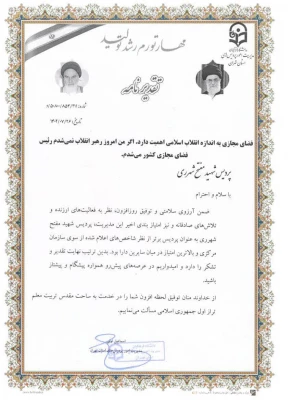 مهار تورم رشد تولید
تقدیرنامه
فضای مجازی به اندازه انقلاب اسلامی اهمیت دارد، اگر من امروز رهبر انقلاب نمی‌شدم رئیس
فضای مجازی کشور می‌شدم.
پردیس شهید مفتح شهرری
با سلام و احترام
ضمن آرزوی سلامتی و توفیق روزافزون، نظر به فعالیت‌های ارزنده و
تلاش های صادقانه و نیز امتیاز بندی های اخیر این مدیریت، پردیس شهید مفتح
شهرری به عنوان پردیس برتر از نظر شاخص‌های اعلام شده از سوی سازمان
مرکزی و بالاترین امتیاز در میان سایرین دارا بود. بدین ترتیب نهایت تقدیر و
تشکر را دارد و امیدواریم در عرصه‌های پیش‌رو همواره پیشگام و پیشتاز
باشید.
از خداوند منان توفیق لحظه افزون شما را در خدمت به ساحت مقدس تربیت معلم
تراز اول جمهوری اسلامی مسألت می‌نماییم.